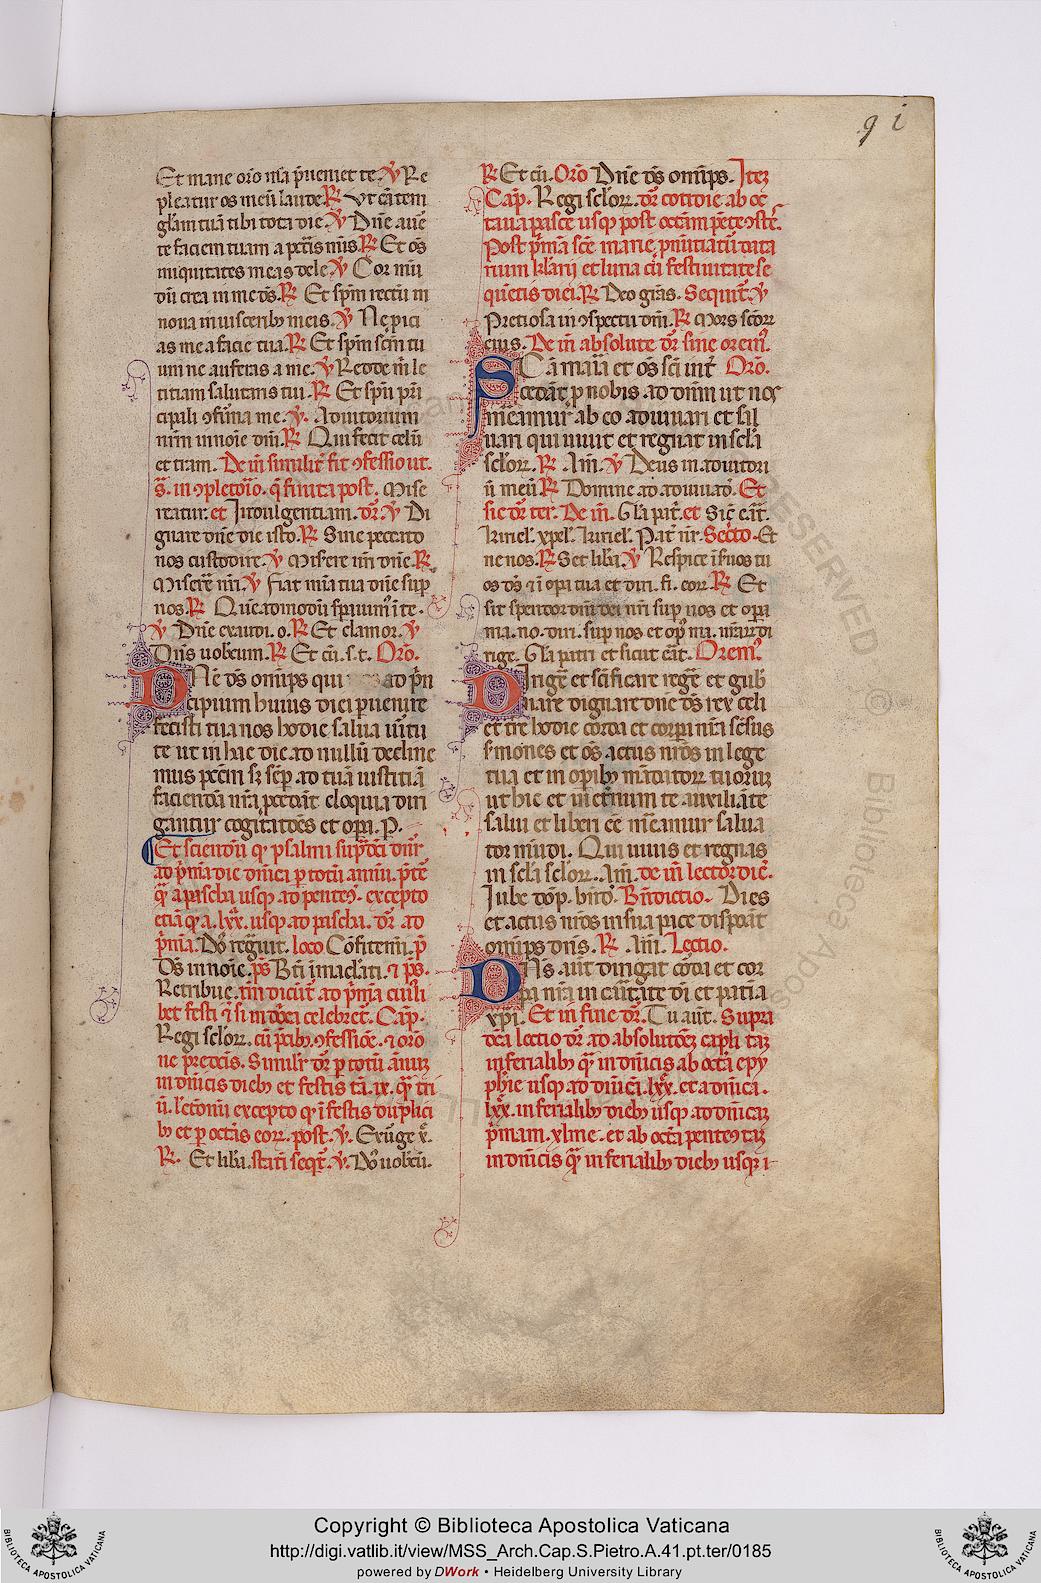 9i
Et mane orõ mã p̃ueniet te. ℣ Re
pleatur os meũ laude ℟ Vt cãtem
glãm tuã tibi tota die. ℣ Dñe auẽ
te faciem tuam a pctĩs mĩs. ℟ Et oẽs
iniquitates meas dele. ℣ Cor mũ
dũ crea in me dš. ℟ Et spm̃ rectũ in
noua in uiscerib meis. ℣ Ne pici
as me a facie tua. ℟ Et spm̃ scm̃ tu
um ne auferas a me. ℣ Redde m̃ le
titiam salutaris tui. ℟ Et spũ pñ
cipali ꝯfirma me. ℣. Adiutorium
nrm̃ in noĩe dnĩ. ℟ Qui fecit celũ
et tram. De iñ similit̃ fit ꝯfessio ut.
s̃. in ꝯpletorio. q̃ finita post. Mise
reatur. et Indulgentiam. dr̃. ℣ Di
gnare dñe die isto. ℟ Sine peccato
nos custodire. ℣ Miserere nr̃i dñe. ℟
Miserere nr̃i. ℣ Fiat mĩa tua dñe sup
nos. ℟ Quẽadmodũ sperauim' ĩ te.
℣ Dñe exaudi. o. ℟ Et clamor. ℣
Dñs uobcum. ℟ Et cũ. s. t. Orõ.
DNe dš omp̃s qui ad p̃n
cipium huius diei peruenire
fecisti tua nos hodie salua uirtu
te ut in hac die ad nullũ decline
mus pctm̃ sꝫ semp̃ ad tuã iustitiã
faciendã nrã pcedãt eloquia diri
gantur cogitatões et opa. P.
Et sciendũ qꝫ psalmi supradcĩ dnr̃
ad p̃mã die dnĩci p totũ annũ. pt̃
q̃ a pascha usqꝫ ad pentecꝯ. excepto
etiã qꝫ a. lxx. usqꝫ ad pascha. dr̃ ad
p̃mã. Dñs regnauit. loco Cõfitemi. p̃
Dš in noĩe. ps̃ Bti imaclati. ⁊ ps.
Retribue. tm̃ dicũt̃ ad p̃mã cuiusli
bet festi ⁊ si in dñica celebret̃. Cap.
Regi seclor̃. cũ p̃cib ꝯfessiõe. ⁊ orõ
ne p̃dictis. Similit̃ dr̃ p totũ annũ
in dñicis dieb et festis tã. ix. q̃ tri
ũ. lectionũ excepto qꝫ ĩ festis duplici
b et p octãs eor̃. post. ℣. Exurge x̃.
℟. Et libã. statĩ seqt̃. ℣. Dñs uobcũ.
℟ Et cũ. Orõ Dñe dš omp̃s. Itẽ
Cap. Regi seclor̃. dr̃ cotidie ab oc
taua pasce usqꝫ post octãm pẽtecꝯstẽ.
Post p̃mã sc̃e marie. pnũtiatũ data
rium klãrij et luna cũ festiuitate se
quẽtis diei. ℟ Deo grãs. Sequit̃. ℣
Pretiosa in ꝯspectu dnĩ. ℟ Mors sc̃or̃
eius. De iñ absolute dr̃ sine orem'.
SCa maria et oẽs sc̃i int̃ Orõ.
cedãt p nobis. ad dnm̃ ut nos
meamur ab eo adiuuari et sal
uari qui uiuit et regnat in secla
seclor̃. ℟ Am̃. ℣ Deus in adiutori
ũ meũ ℟ Domine ad adiuuãd. Et
sic dr̃ ter. De iñ. Glã pat̃. et Sic̃ eãt.
kirieł. xpeł. kirieł. Pat̃ nr̃. Secreto. Et
ne nos. ℟ Set libã ℣ Respice ĩ s̃uos tu
os dš ⁊ ĩ opa tua et diri. fi. eor̃. ℟ Et
sit splendor dnĩ dei nr̃i sup nos et opa
ma. no. diri. sup nos et op' ma. nr̃ar̃ di
rige. Glã patri et sicut eãt. Orem'.
DIrige et sc̃ificare rege et gub
nare dignare dñe dš rex celi
et tre hodie corda et corpa nrã sẽsus
smones et oẽs actus nr̃os in lege
tua et in opibꝫ mãdator̃ tuorum
ut hic et in eternum te auxiliãte
salui et liberi eẽ meamur salua
tor mũdi. Qui uiuis et regnas
in secla seclor̃. Am̃. de iñ lector dic̃.
Iube dõp. bñd'. Bñdictio. Dies
et actus nr̃os in sua pace disponãt
omp̃s dñs. ℟ Am̃. Lectio.
DÑs. aũt dirigat corda et cor
pa nrã in caritate dĩ et patiã
xpĩ. Et in fine dr̃. Tu aũt. Supra
dcã lectio dr̃ ad absolutõeꝫ capli tã
in ferialib q̃ in dñicis ab octã epy
phie usqꝫ ad dñicã. lxx. et a dñica.
lxx. in ferialib dieb usqꝫ ad dñicaꝫ
p̃mam. xlme. et ab octã pentecꝯ tã
in dñicis q̃ in ferialib dieb usqꝫ ĩ
Copyright © Biblioteca Apostolica Vaticana
http://digi.vatlib.it/view/MSS_Arch.Cap.S.Pietro.A.41.pt.ter/0185
powered by DWork • Heidelberg University Library
BIBLIOTECA APOSTOLICA VATICANA
BIBLIOTECA APOSTOLICA VATICANA